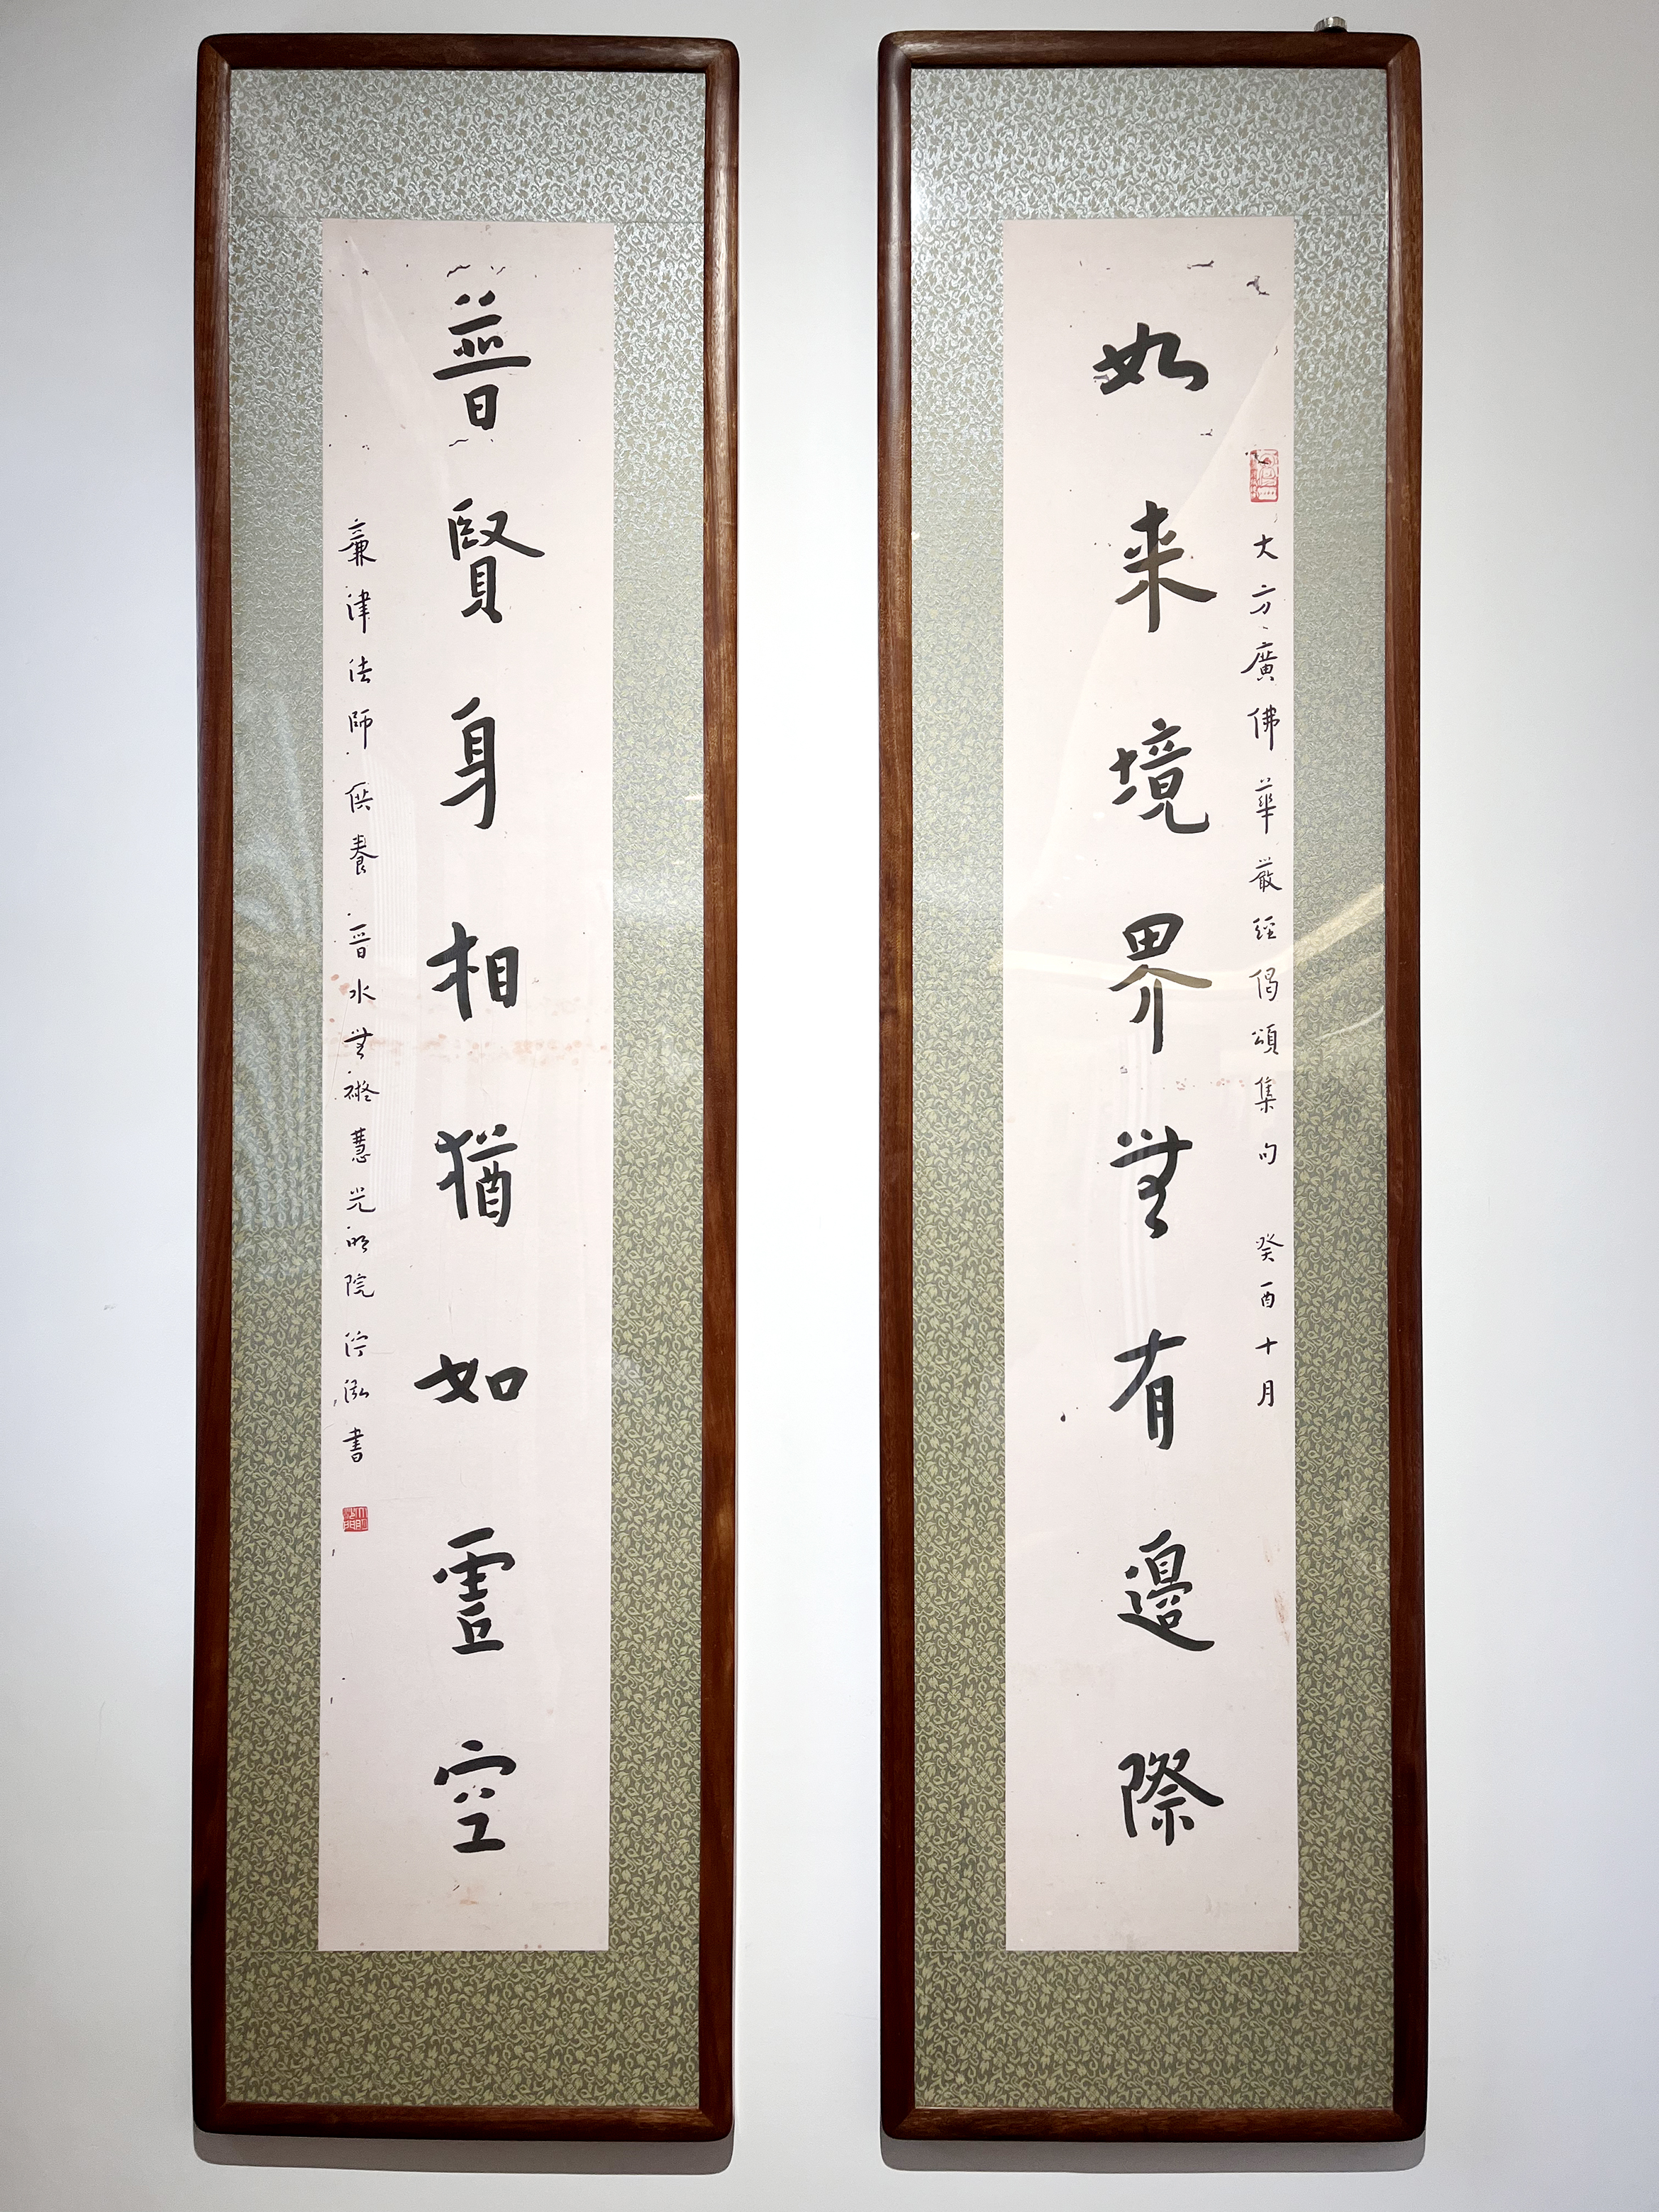 大方廣佛華嚴經偈頌集句 癸酉十月
如来境界無有邊際
普賢身相猶如虗空
亷津法師供養 晉水無礙慧光明院 泓書